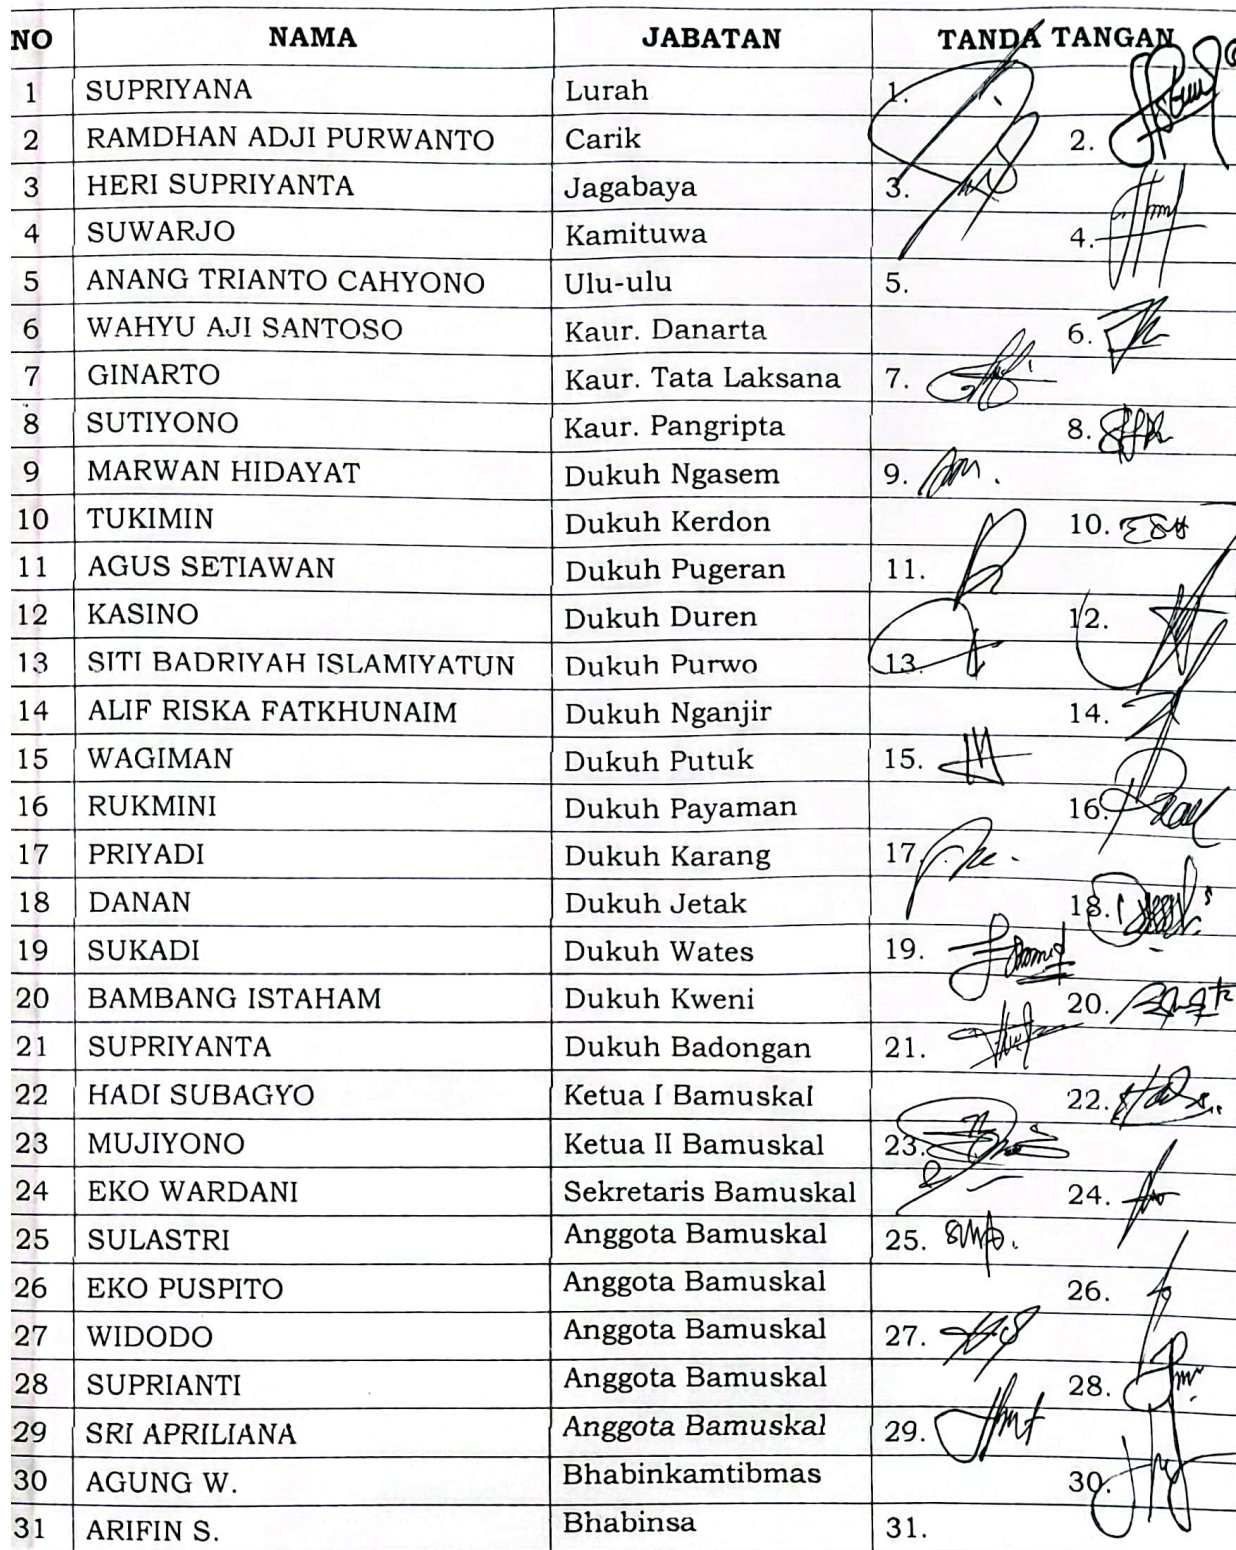 NO NAMA JABATAN TANDA TANGAN
1 SUPRIYANA Lurah 1.
2 RAMDHAN ADJI PURWANTO Carik 2.
3 HERI SUPRIYANTA Jagabaya 3.
4 SUWARJO Kamituwa 4.
5 ANANG TRIANTO CAHYONO Ulu-ulu 5.
6 WAHYU AJI SANTOSO Kaur. Danarta 6.
7 GINARTO Kaur. Tata Laksana 7.
8 SUTIYONO Kaur. Pangripta 8.
9 MARWAN HIDAYAT Dukuh Ngasem 9.
10 TUKIMIN Dukuh Kerdon 10.
11 AGUS SETIAWAN Dukuh Pugeran 11.
12 KASINO Dukuh Duren 12.
13 SITI BADRIYAH ISLAMIYATUN Dukuh Purwo 13.
14 ALIF RISKA FATKHUNAIM Dukuh Nganjir 14.
15 WAGIMAN Dukuh Putuk 15.
16 RUKMINI Dukuh Payaman 16.
17 PRIYADI Dukuh Karang 17.
18 DANAN Dukuh Jetak 18.
19 SUKADI Dukuh Wates 19.
20 BAMBANG ISTAHAM Dukuh Kweni 20.
21 SUPRIYANTA Dukuh Badongan 21.
22 HADI SUBAGYO Ketua I Bamuskal 22.
23 MUJIYONO Ketua II Bamuskal 23.
24 EKO WARDANI Sekretaris Bamuskal 24.
25 SULASTRI Anggota Bamuskal 25.
26 EKO PUSPITO Anggota Bamuskal 26.
27 WIDODO Anggota Bamuskal 27.
28 SUPRIANTI Anggota Bamuskal 28.
29 SRI APRILIANA Anggota Bamuskal 29.
30 AGUNG W. Bhabinkamtibmas 30.
31 ARIFIN S. Bhabinsa 31.